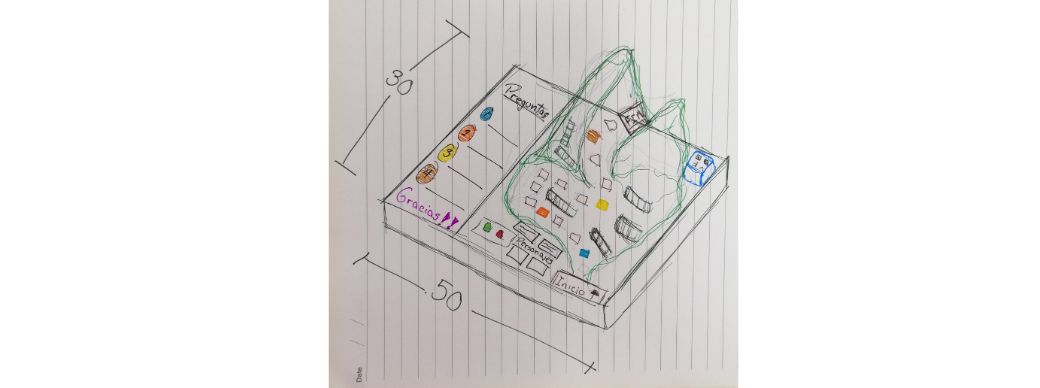 30
Preguntas
1
2
3
4
Gracias!!
Personajes
Inicio
50
Date